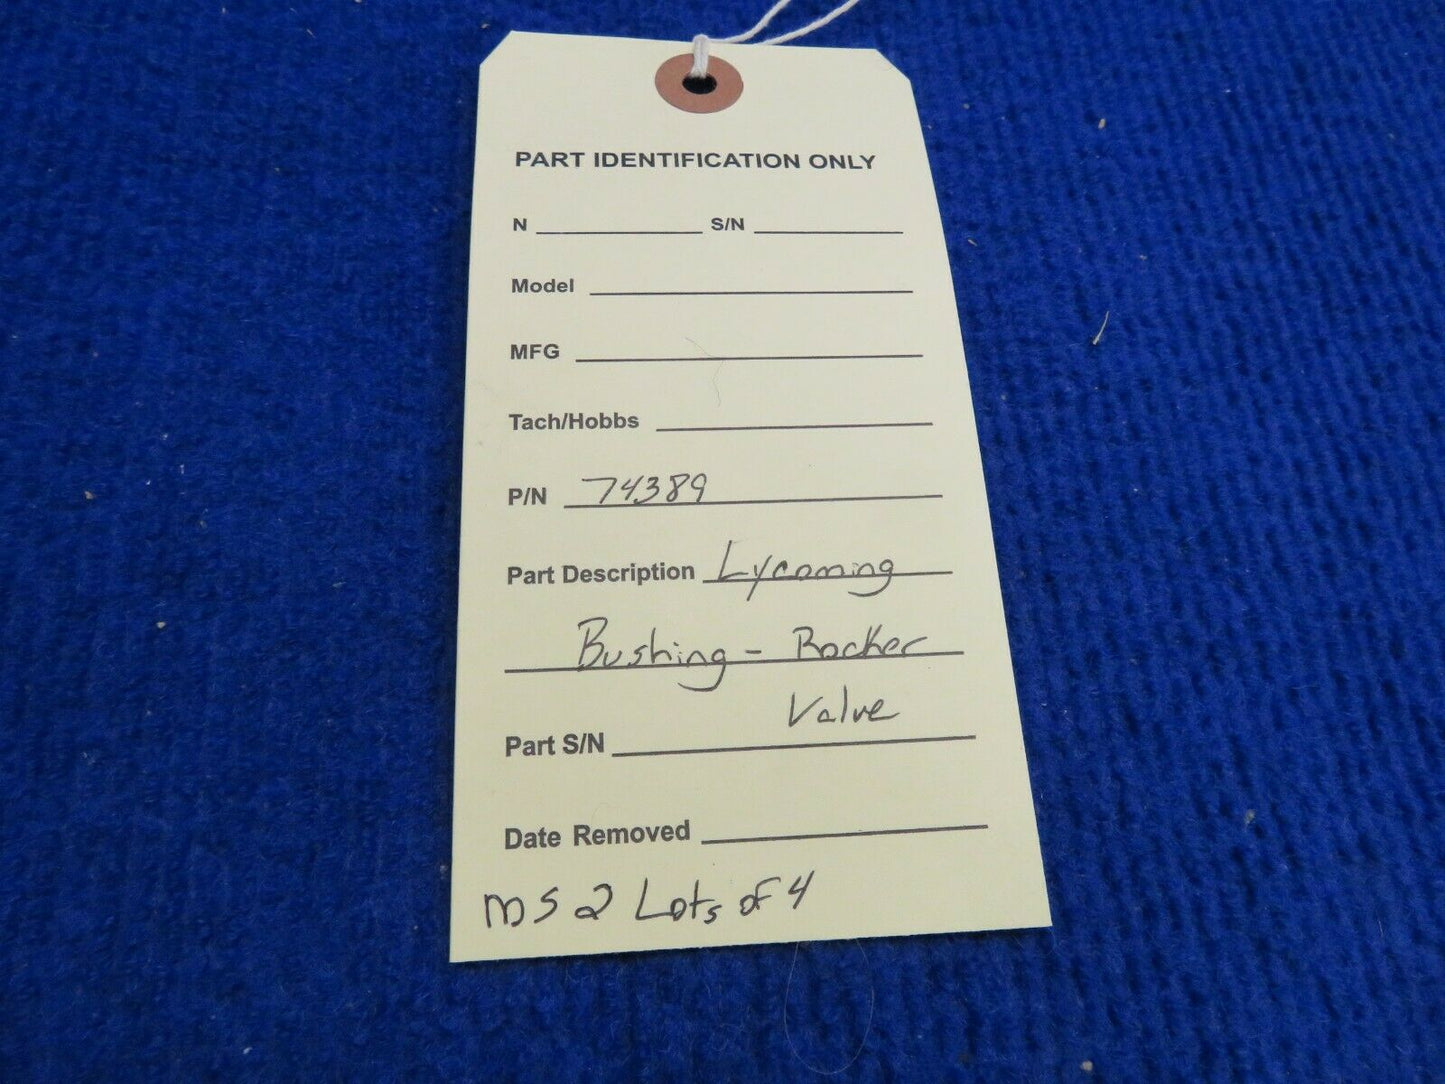 PART IDENTIFICATION ONLY
N S/N
Model
MFG
Tach/Hobbs
P/N 74389
Part Description Lycoming
Bushing - Rocker
Valve
Part S/N
Date Removed
MS 2 Lots of 4